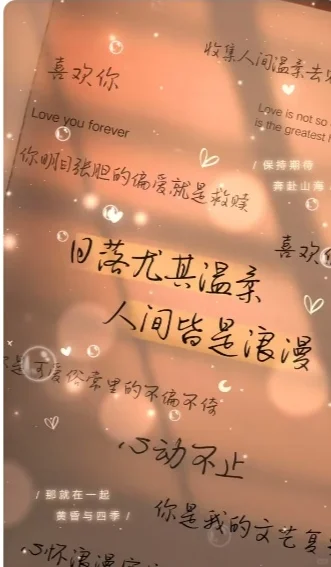 收集人间温柔去
喜欢你
Love is not so
Love you forever
is the greatest
/ 保持期待
奔赴山海
你明目张胆的偏爱就是救赎
喜欢
日落尤其温柔
人间皆是浪漫
是可爱俗常里的不偏不倚
心动不止
/ 那就在一起
黄昏与四季 /
你是我的文艺复
心怀浪漫